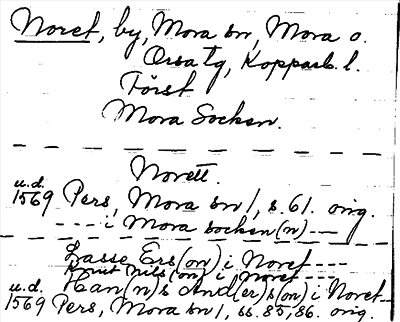 Noret, by, Mora sn, Mora o.
Orsa tg, Kopparb. l.
Först
Mora Socken.
Norett.
u.d.
1569 Pers, Mora sn 1, s. 61. orig.
---- i Mora socken(n) ---
Lasse Ers(on) i Noret ----
Knut Nils(on) i Noret ----
Han(n)s And(er)s(on) i Noret --
u.d.
1569 Pers, Mora sn 1, ss. 85, 86. orig.